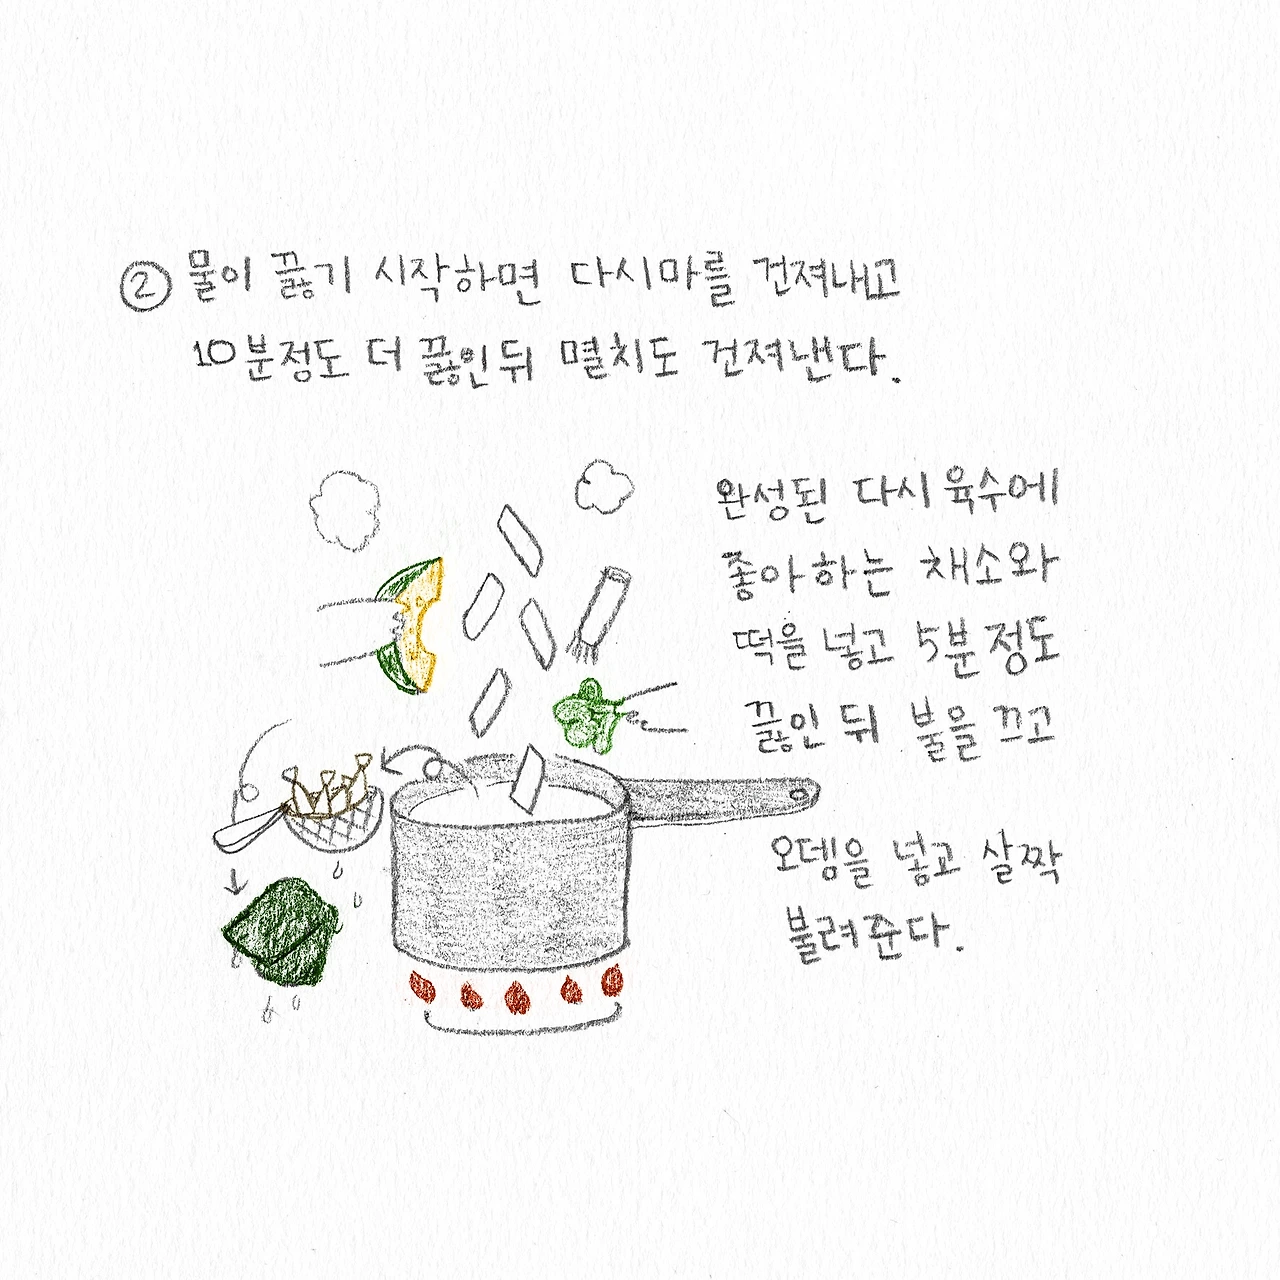 ② 물이 끓기 시작하면 다시마를 건져내고
10분정도 더 끓인 뒤 멸치도 건져낸다.
완성된 다시 육수에
좋아하는 채소와
떡을 넣고 5분 정도
끓인 뒤 불을 끄고
오뎅을 넣고 살짝
불려준다.